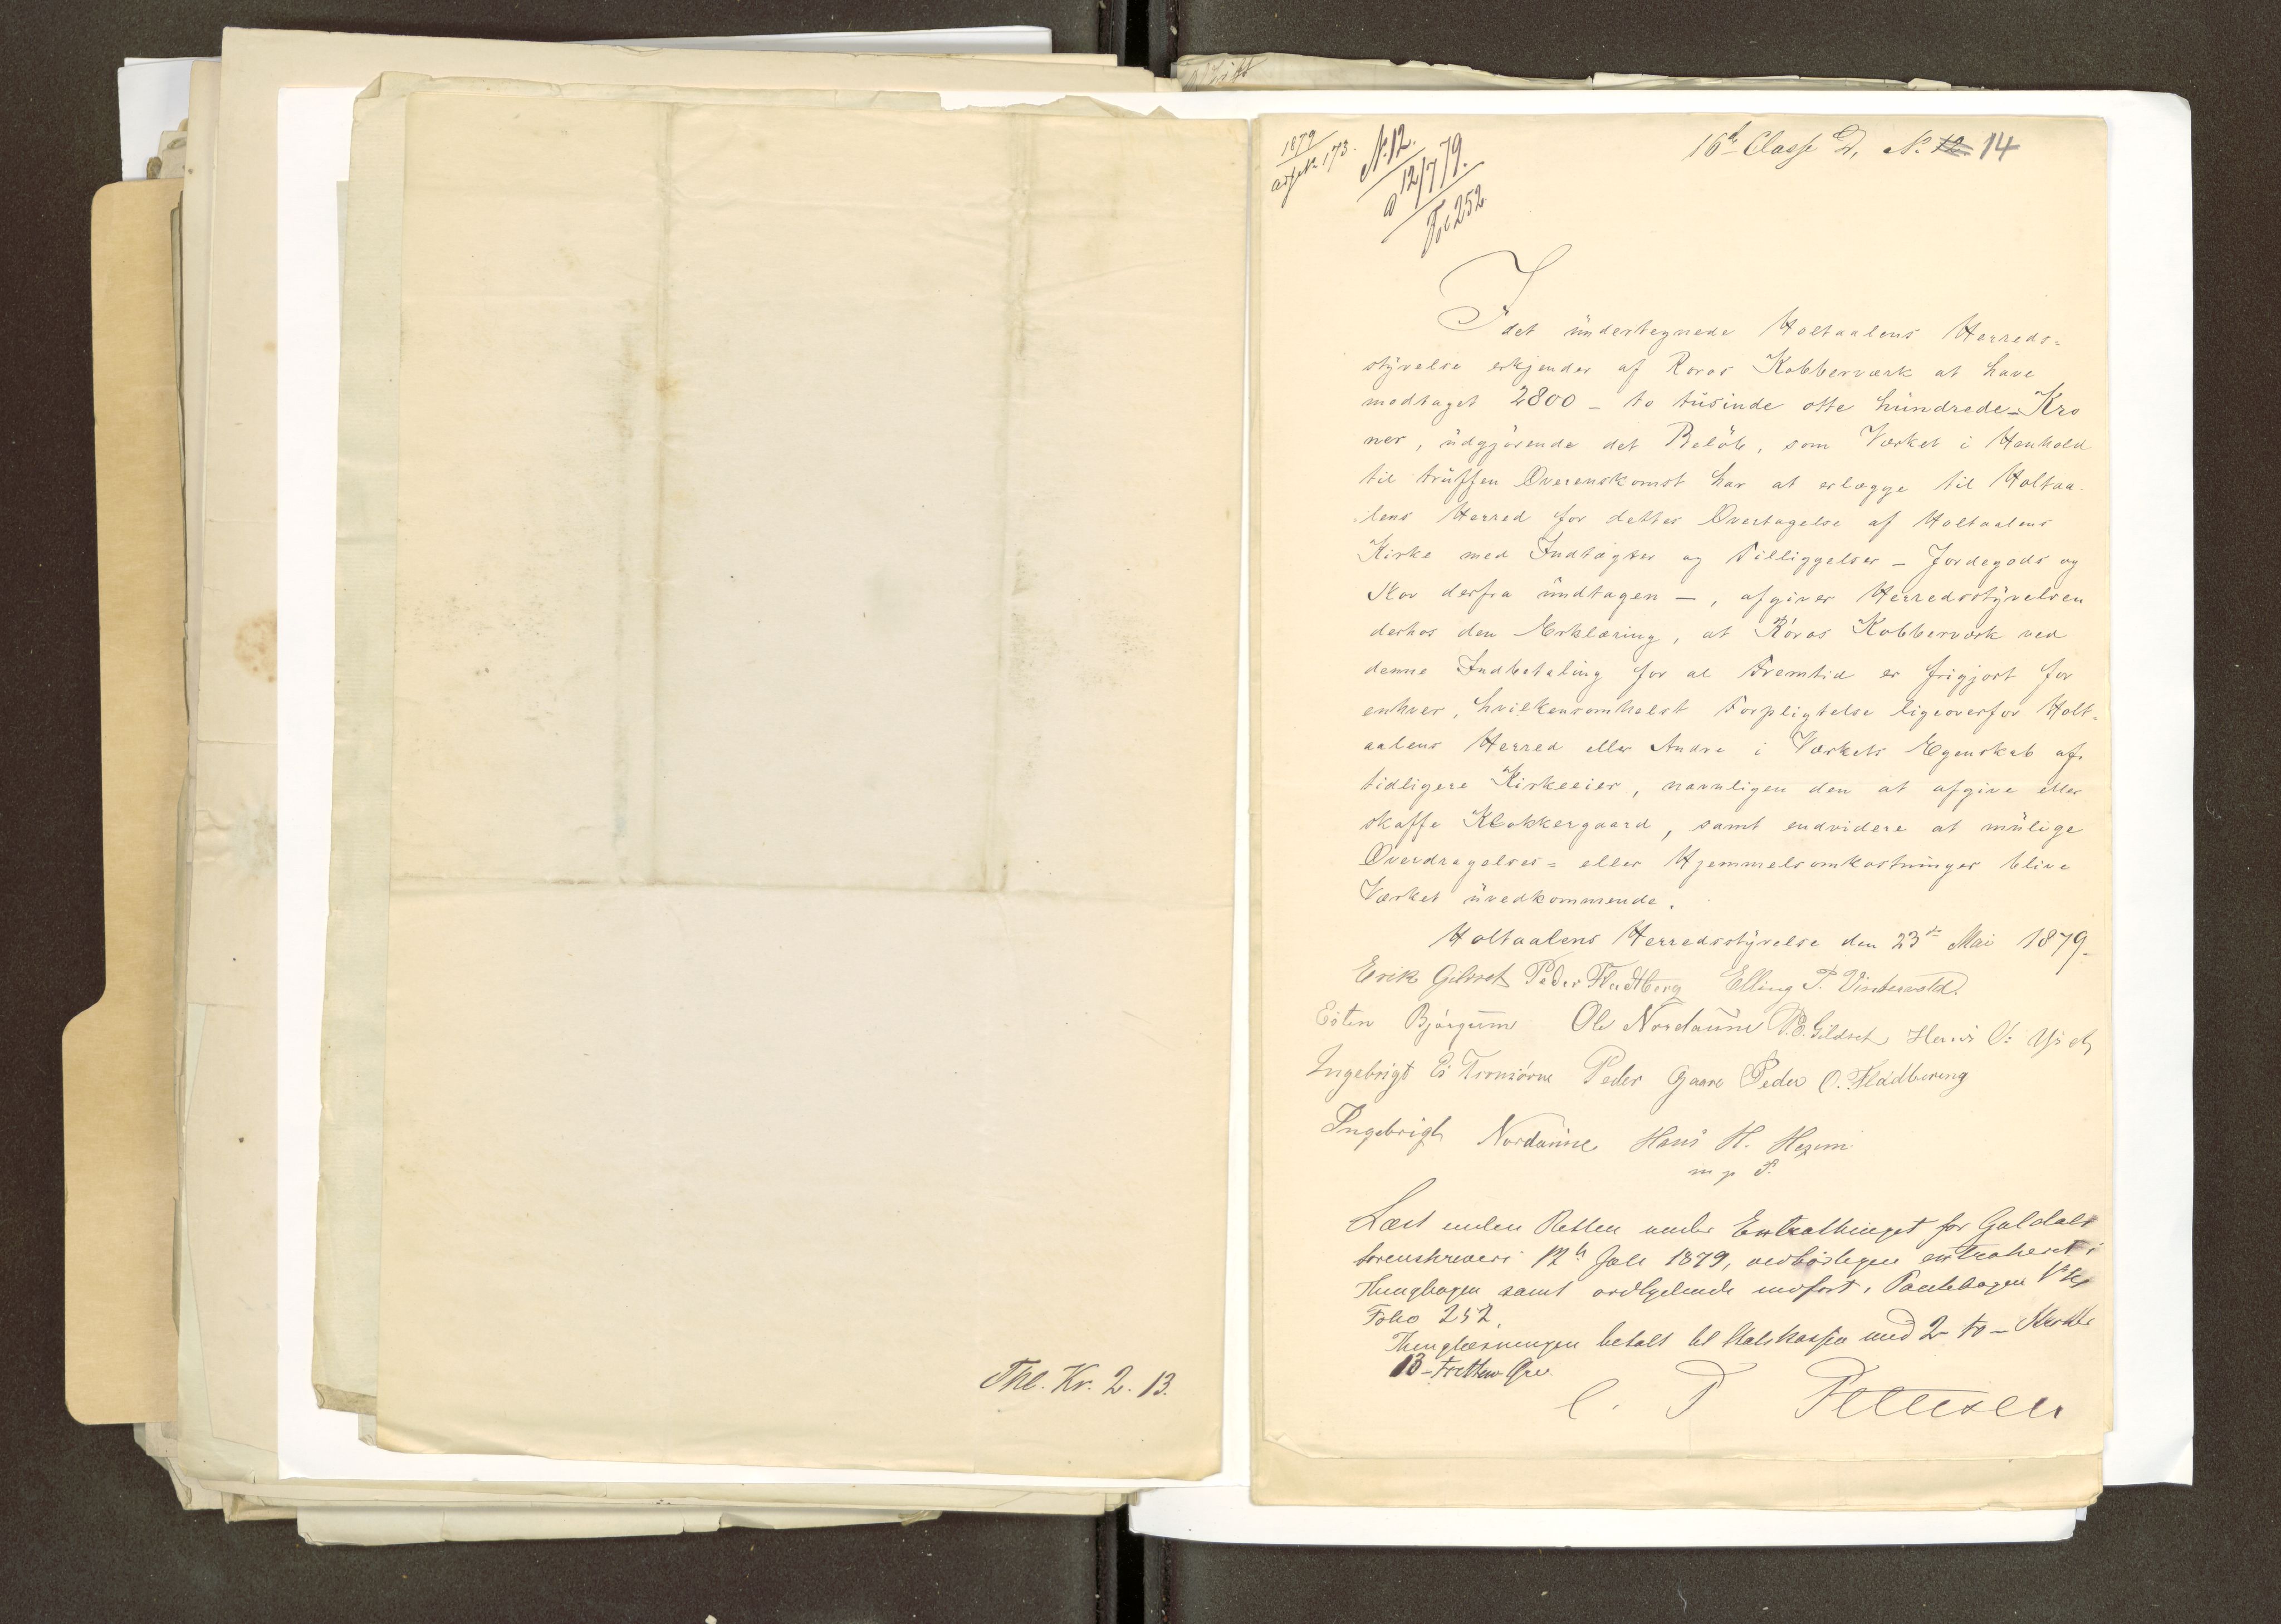 Thl. Kr. 2. 13.
1879
N. 173.
N. 12.
12/7 79.
Fol 252
16de Classe D, No 12 14
Idet undertegnede Holtaalens Herreds=
styrelse erkjender af Røros Kobberværk at have
modtaget 2800 - to tusinde otte hundrede - Kro
ner, udgjørende det Beløb, som Værket i Henhold
til truffen Overenskomst har at erlægge til Holtaa-
lens Herred for dettes Overtagelse af Holtaalens
Kirke med Indtægter og Tilliggelser - Jordegods og
Kor derfra undtagen -, afgiver Herredsstyrelsen
derhos den Erklæring, at Røros Kobberværk ved
denne Indbetaling for al Fremtid er frigjort for
enhver, hvilkensomhelst Forpligtelse ligeoverfor Holt-
aalens Herred eller Andre i Værkets Egenskab af
tidligere Kirkeeier, navnligen den at afgive eller
skaffe Klokkergaard, samt endvidere at mulige
Overdragelses= eller Hjemmelsomkostninger blive
Værket uvedkommende.
Holtaalens Herredsstyrelse den 23de Mai 1879.
Erik Gilsrot Peder Fladtberg Elling P. Vintervold.
Eisten Bjørgum Ole Nordaune P. E. Gildset
Ingebrigt Peder Gaare Peder O. Fladberg
Ingebrigt Nordaune Hans H. Hegem
m p P.
Læst inden Retten under Extrathinget for Guldals
Sorenskriveri 12te Juli 1879, vedbørligen extraheret i
Thingbogen samt ordlydende indført i Pantebogen
Folio 252.
Thinglæsningen betalt til Statskassen med 2 - to -
13 - tretten Øre.
C. P. Pettersen